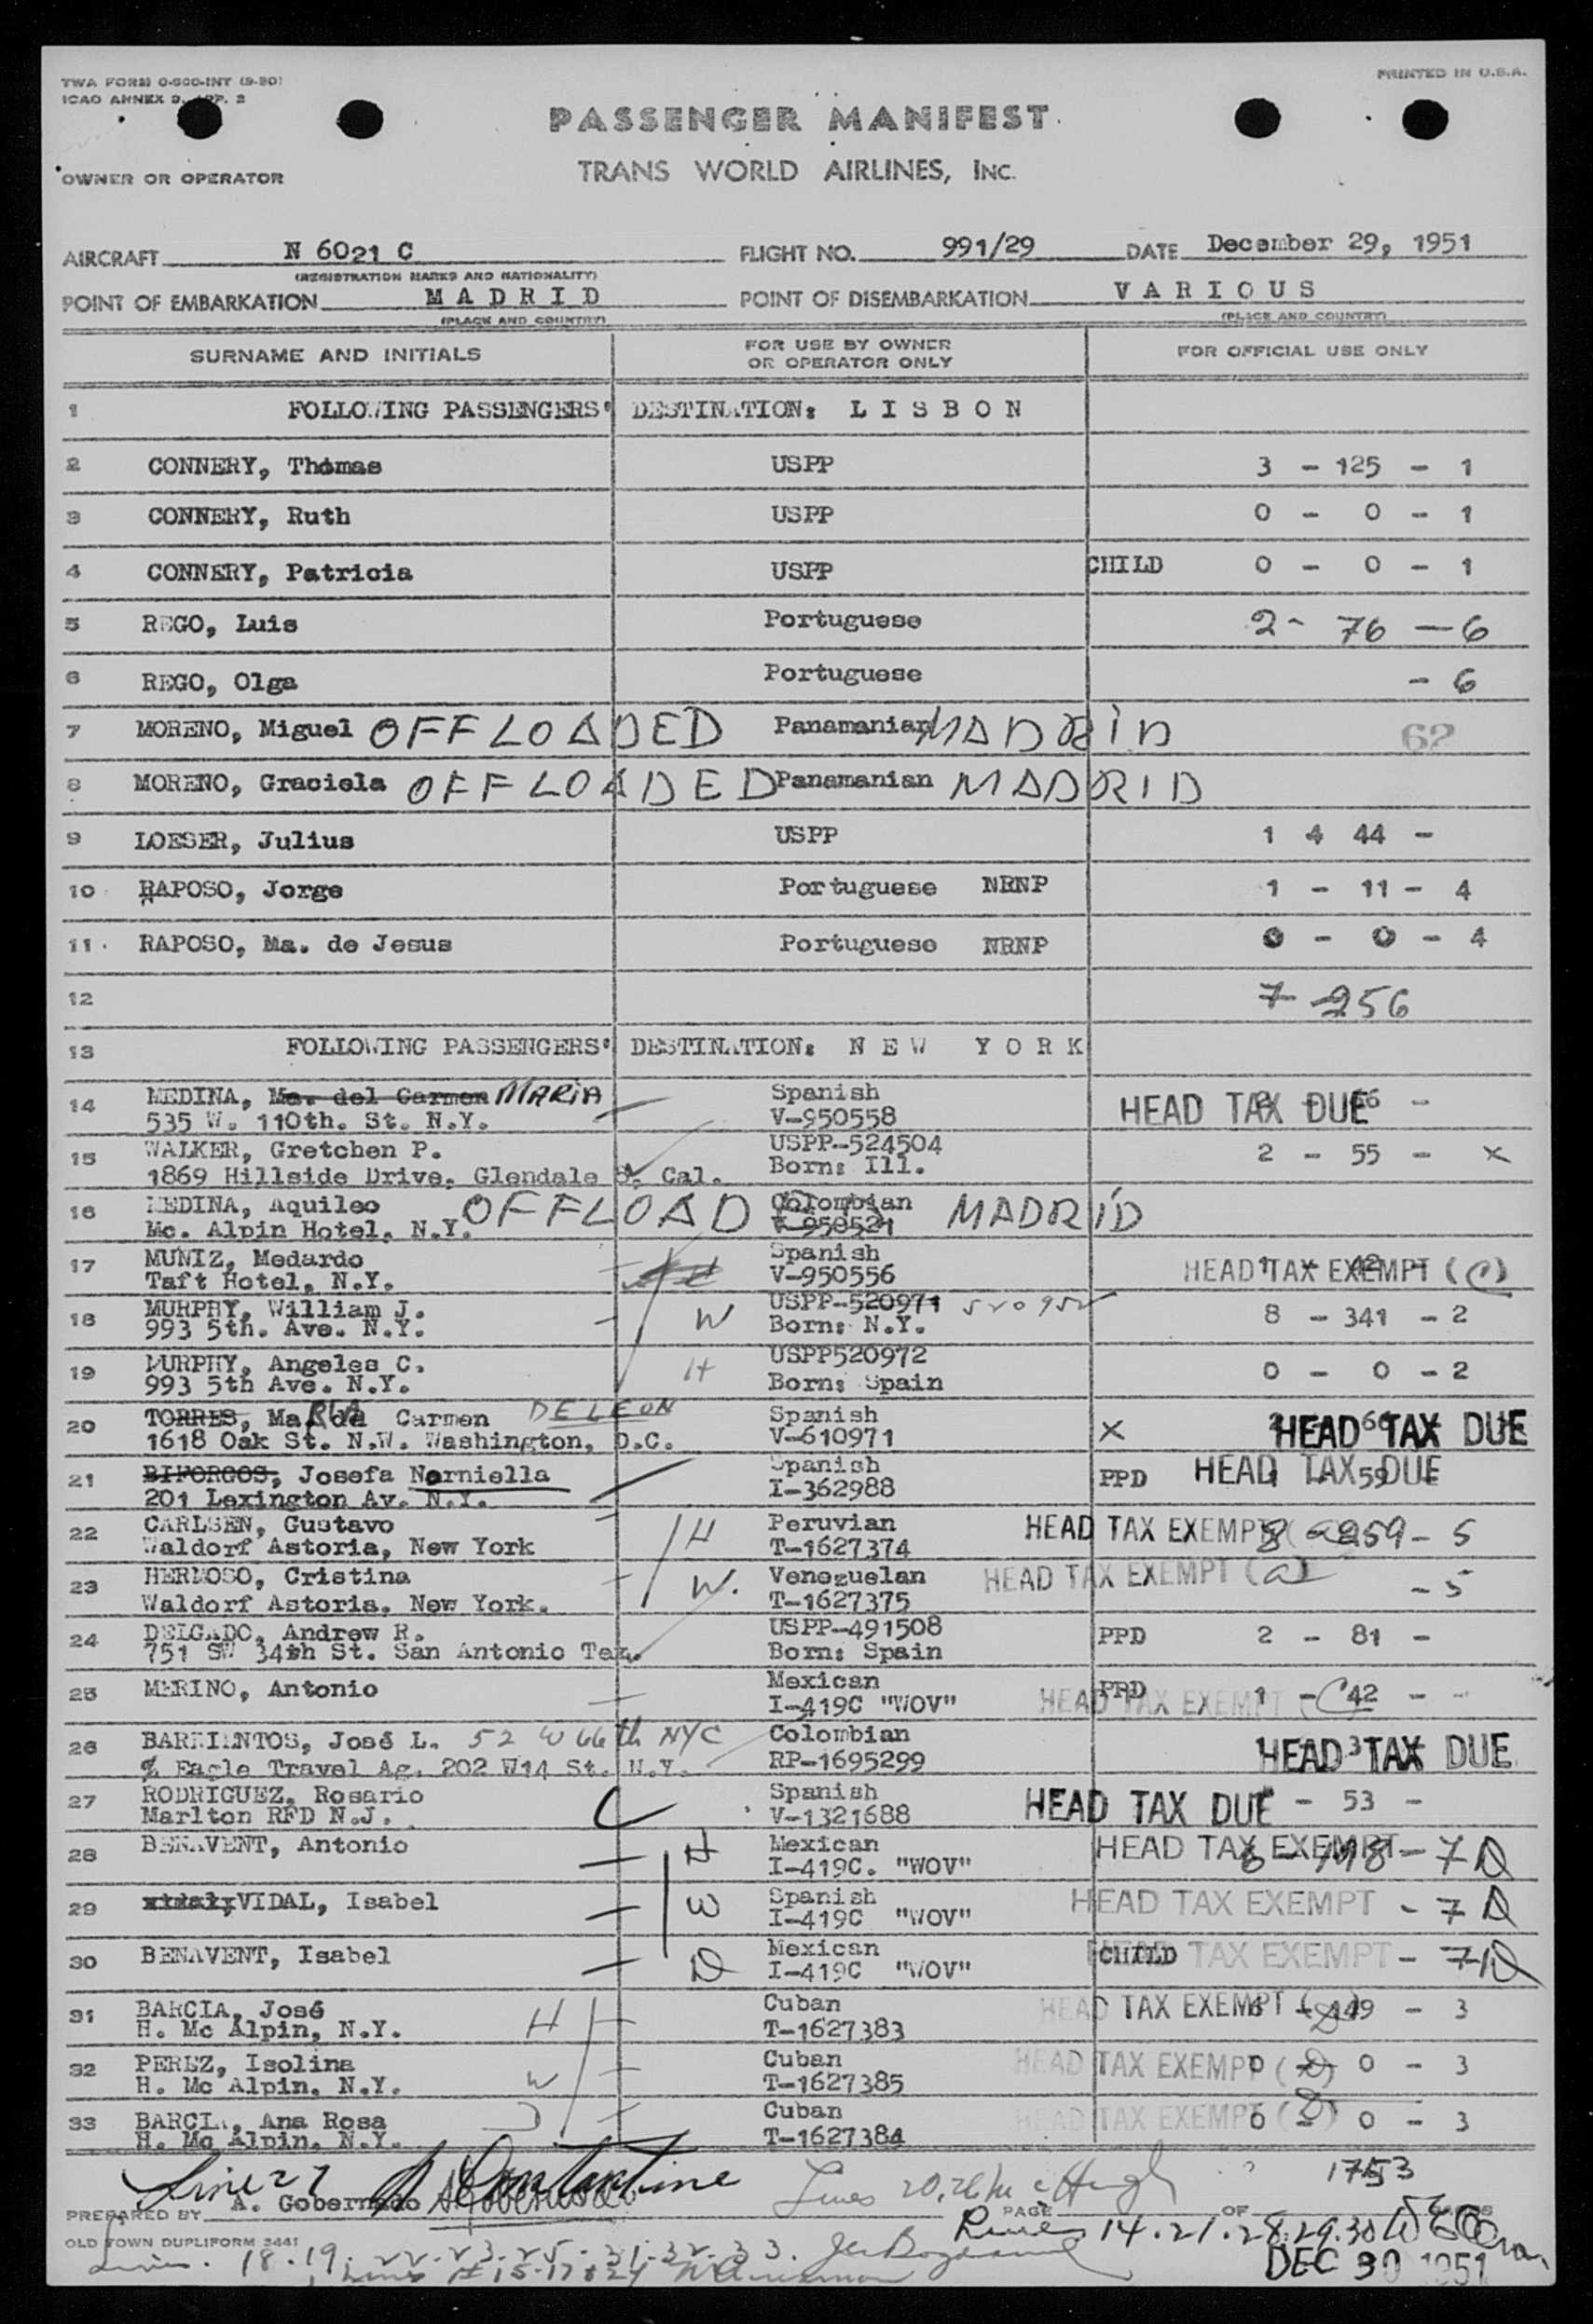 TWA FORM 0-600-INT (9-50)
ICAO ANNEX 9, APP. 2
PRINTED IN U.S.A.
PASSENGER MANIFEST
OWNER OR OPERATOR
TRANS WORLD AIRLINES, INC.
AIRCRAFT N 6021 C FLIGHT NO. 991/29 DATE December 29, 1951
(REGISTRATION MARKS AND NATIONALITY)
POINT OF EMBARKATION M A D R I D POINT OF DISEMBARKATION V A R I O U S
(PLACE AND COUNTRY) (PLACE AND COUNTRY)
SURNAME AND INITIALS
FOR USE BY OWNER
OR OPERATOR ONLY
FOR OFFICIAL USE ONLY
1 FOLLOWING PASSENGERS' DESTINATION: L I S B O N
2 CONNERY, Thomas USPP 3 - 125 - 1
3 CONNERY, Ruth USPP 0 - 0 - 1
4 CONNERY, Patricia USPP CHILD 0 - 0 - 1
5 REGO, Luis Portuguese 2 - 76 - 6
6 REGO, Olga Portuguese - 6
7 MORENO, Miguel OFFLOADED Panamanian MADRID 62
8 MORENO, Graciela OFFLOADED Panamanian MADRID
9 LOESER, Julius USPP 1 4 44 -
10 RAPOSO, Jorge Portuguese NRNP 1 - 11 - 4
11 RAPOSO, Ma. de Jesus Portuguese NRNP 0 - 0 - 4
12 7 - 256
13 FOLLOWING PASSENGERS' DESTINATION: N E W Y O R K
14 MEDINA, Ma. del Carmen MARIA Spanish HEAD TAX DUE
535 W. 110th. St. N.Y. V-950558
15 WALKER, Gretchen P. USPP-524504 2 - 55 - X
1869 Hillside Drive, Glendale Cal. Born: Ill.
16 MEDINA, Aquileo OFFLOADED Colombian MADRID
Mc. Alpin Hotel, N.Y. V-950521
17 MUNIZ, Medardo Spanish HEAD TAX EXEMPT (C)
Taft Hotel, N.Y. V-950556
18 MURPHY, William J. W USPP-520971 520952 8 - 341 - 2
993 5th. Ave. N.Y. Born: N.Y.
19 MURPHY, Angeles C. H USPP520972 0 - 0 - 2
993 5th Ave. N.Y. Born: Spain
20 TORRES, Ma. de Carmen DE LEON Spanish X HEAD TAX DUE
1618 Oak St. N.W. Washington, D.C. V-610971
21 BIFORCOS, Josefa Norniella Spanish PPD HEAD TAX DUE 59
201 Lexington Av. N.Y. I-362988
22 CARLSEN, Gustavo H Peruvian HEAD TAX EXEMPT 8 - 259 - 5
Waldorf Astoria, New York T-1627374
23 HERMOSO, Cristina W. Venezuelan HEAD TAX EXEMPT (a) - 5
Waldorf Astoria, New York. T-1627375
24 DELGADO, Andrew R. USPP-491508 PPD 2 - 81 -
751 SW 34th St. San Antonio Tex. Born: Spain
25 MERINO, Antonio Mexican PPD HEAD TAX EXEMPT 1 - 42 - -
I-419C "WOV"
26 BARRIENTOS, José L. 52 W 66th NYC Colombian HEAD TAX DUE
% Eagle Travel Ag. 202 W14 St. N.Y. RP-1695299
27 RODRIGUEZ, Rosario Spanish HEAD TAX DUE - 53 -
Marlton RFD N.J. V-1321688
28 BENAVENT, Antonio H Mexican HEAD TAX EXEMPT - 7 D
I-419C. "WOV"
29 VIDAL, Isabel W Spanish HEAD TAX EXEMPT - 7 D
I-419C "WOV"
30 BENAVENT, Isabel D Mexican CHILD HEAD TAX EXEMPT - 7 D
I-419C "WOV"
31 BARCIA, José H Cuban HEAD TAX EXEMPT (D) 149 - 3
H. Mc Alpin, N.Y. T-1627383
32 PEREZ, Isolina W Cuban HEAD TAX EXEMPT (D) 0 - 0 - 3
H. Mc Alpin, N.Y. T-1627385
33 BARCIA, Ana Rosa D Cuban HEAD TAX EXEMPT (D) 0 - 0 - 3
H. Mc Alpin, N.Y. T-1627384
1753
Line 27
Lines 20, 26
PREPARED BY A. Gobernado PAGE OF
Lines 14.21.28.29.30
OLD TOWN DUPLIFORM 2441
Lines 18.19. 22.23.25.31.32.33.
Lines 15-17 & 24
DEC 30 1951